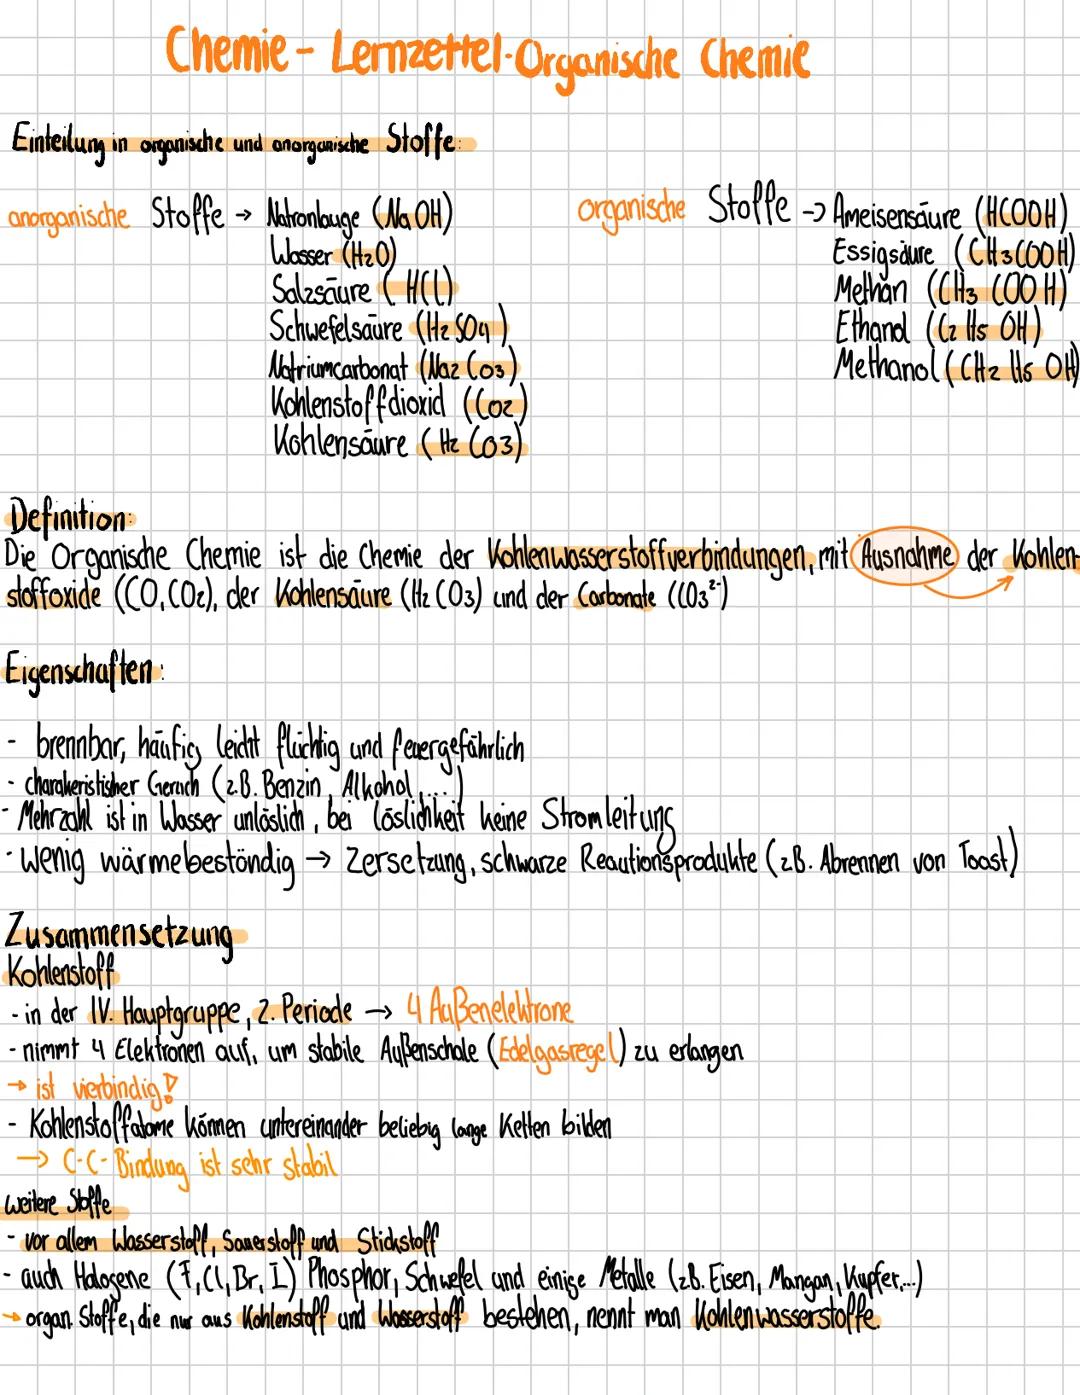 Chemie - Lernzettel - Organische Chemie
Einteilung in organische und anorganische Stoffe:
anorganische Stoffe → Natronlauge (NaOH)
Wasser (H2O)
Salzsäure (HCl)
Schwefelsäure (H2SO4)
Natriumcarbonat (Na2CO3)
Kohlenstoffdioxid (CO2)
Kohlensäure (H2CO3)
organische Stoffe → Ameisensäure (HCOOH)
Essigsäure (CH3COOH)
Methan (CH3COOH)
Ethanol (C2H5OH)
Methanol (CH2H5OH)
Definition:
Die Organische Chemie ist die Chemie der Kohlenwasserstoffverbindungen, mit Ausnahme der Kohlen-
stoffoxide (CO, CO2), der Kohlensäure (H2CO3) und der Carbonate (CO3²⁻)
Eigenschaften:
- brennbar, häufig leicht flüchtig und feuergefährlich
- charakeristischer Geruch (z.B. Benzin, Alkohol, ...)
- Mehrzahl ist in Wasser unlöslich, bei Löslichkeit keine Stromleitung
- wenig wärmebeständig → Zersetzung, schwarze Reautionsprodukte (zB. Abrennen von Toast)
Zusammensetzung
Kohlenstoff
- in der IV. Hauptgruppe, 2. Periode → 4 Außenelektrone
- nimmt 4 Elektronen auf, um stabile Außenschale (Edelgasregel) zu erlangen
→ ist vierbindig!
- Kohlenstoffatome können untereinander beliebig lange Ketten bilden
→ C-C-Bindung ist sehr stabil
weitere Stoffe
- vor allem Wasserstoff, Sauerstoff und Stickstoff
- auch Halogene (F, Cl, Br, I) Phosphor, Schwefel und einige Metalle (zB. Eisen, Mangan, Kupfer,...)
→ organ. Stoffe, die nur aus Kohlenstoff und Wasserstoff bestehen, nennt man Kohlenwasserstoffe.